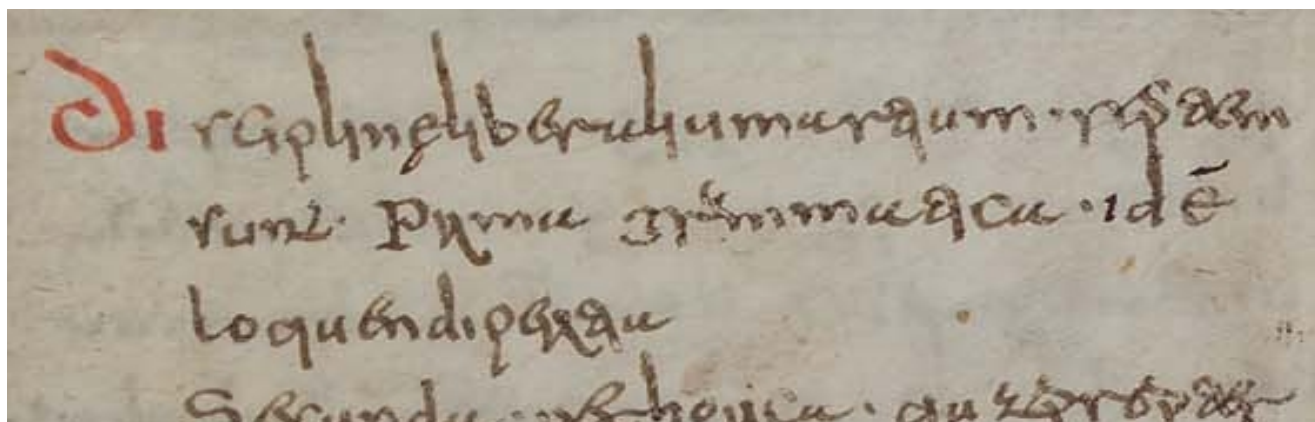 Disciplinę liberalium artium septem
sunt· Prima grammatica · id ē
loquendi peritia
Secunda · rethorica ·